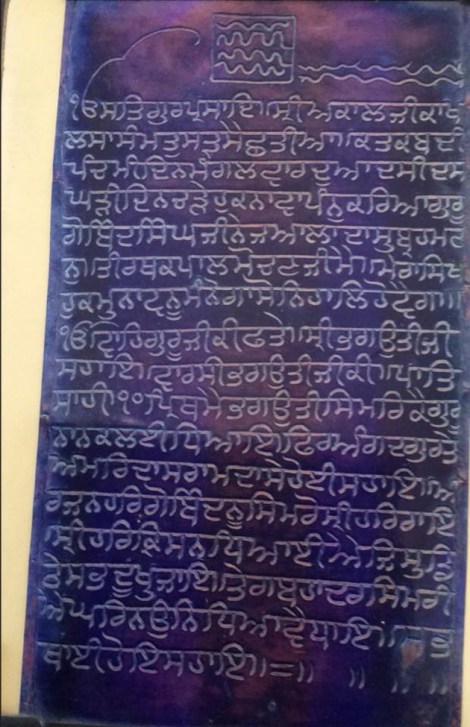 ੧ੳ ਸਤਿਗੁਰ ਪ੍ਰਸਾਦਿ ॥ ਸ੍ਰੀ ਅਕਾਲ ਜੀ ਕਾ ਖਾ
ਲਸਾ ਸੰਮਤ ੧੭ਸੈ
ਪੰਚਮੀ ਦਿਨ ਮੰਗਲਵਾਰ ਦੁਆਦਸੀ ਦਸ
ਘੜੀ ਦਿਨ ਚੜੇ ਹੁਕਨਾਵਾ ਪੰਨੂ ਕਰਿਆ ਗੁਰੂ
ਗੋਬਿੰਦ ਸਿੰਘ ਜੀ ਨੇ
ਤੀਰਥ ਕਪਾਲ ਮੋਚਣ ਜੀ ਮੇਰਾ ਸਿਖ
ਹੁਕਮੁਨਾਵਾ ਨੂ ਮੰਨੇਗਾ ਸੋ ਨਿਹਾਲਿ ਹੋਵੈਗਾ ॥
੧ੳ ਵਾਹਿਗੁਰੂ ਜੀ ਕੀ ਫਤੇ ॥ ਸ੍ਰੀ ਭਗਉਤੀ ਜੀ
ਸਹਾਇ ॥ ਵਾਰ ਸ੍ਰੀ ਭਗਉਤੀ ਜੀ ਕੀ ॥ ਪਾਤਿ
ਸਾਹੀ ੧੦ ॥ ਪ੍ਰਿਥਮੇ ਭਗਉਤੀ ਸਿਮਰਿਕੈ ਗੁਰੂ
ਨਾਨਕ ਲਈ ਧਿਆਇ ॥ ਫਿਰ ਅੰਗਦ ਗੁਰ ਤੇ
ਅੰਮਰਿਦਾਸ ਰਾਮਦਾਸੇ ਹੋਈ ਸਹਾਇ ॥ ਅ
ਰਜਨ ਹਰਿਗੋਬਿੰਦ ਨੂ ਸਿਮਰੋ ਸ੍ਰੀ ਹਰਿਰਾਇ
॥ ਸ੍ਰੀ ਹਰਿਕ੍ਰਿਸਨ ਧਿਆਈਐ ਜਿਸੁ ਡਿ
ਠੇ ਸਭ ਦੁਖੁ ਜਾਇ ॥ ਤੇਗ ਬਹਾਦਰ ਸਿਮਰੀ
ਐ ਘਰਿ ਨਉਨਿਧਿ ਆਵੈ ਧਾਇ ॥ ਸਭ
ਥਾਈ ਹੋਇ ਸਹਾਇ ॥=॥ ॥ ॥ ॥